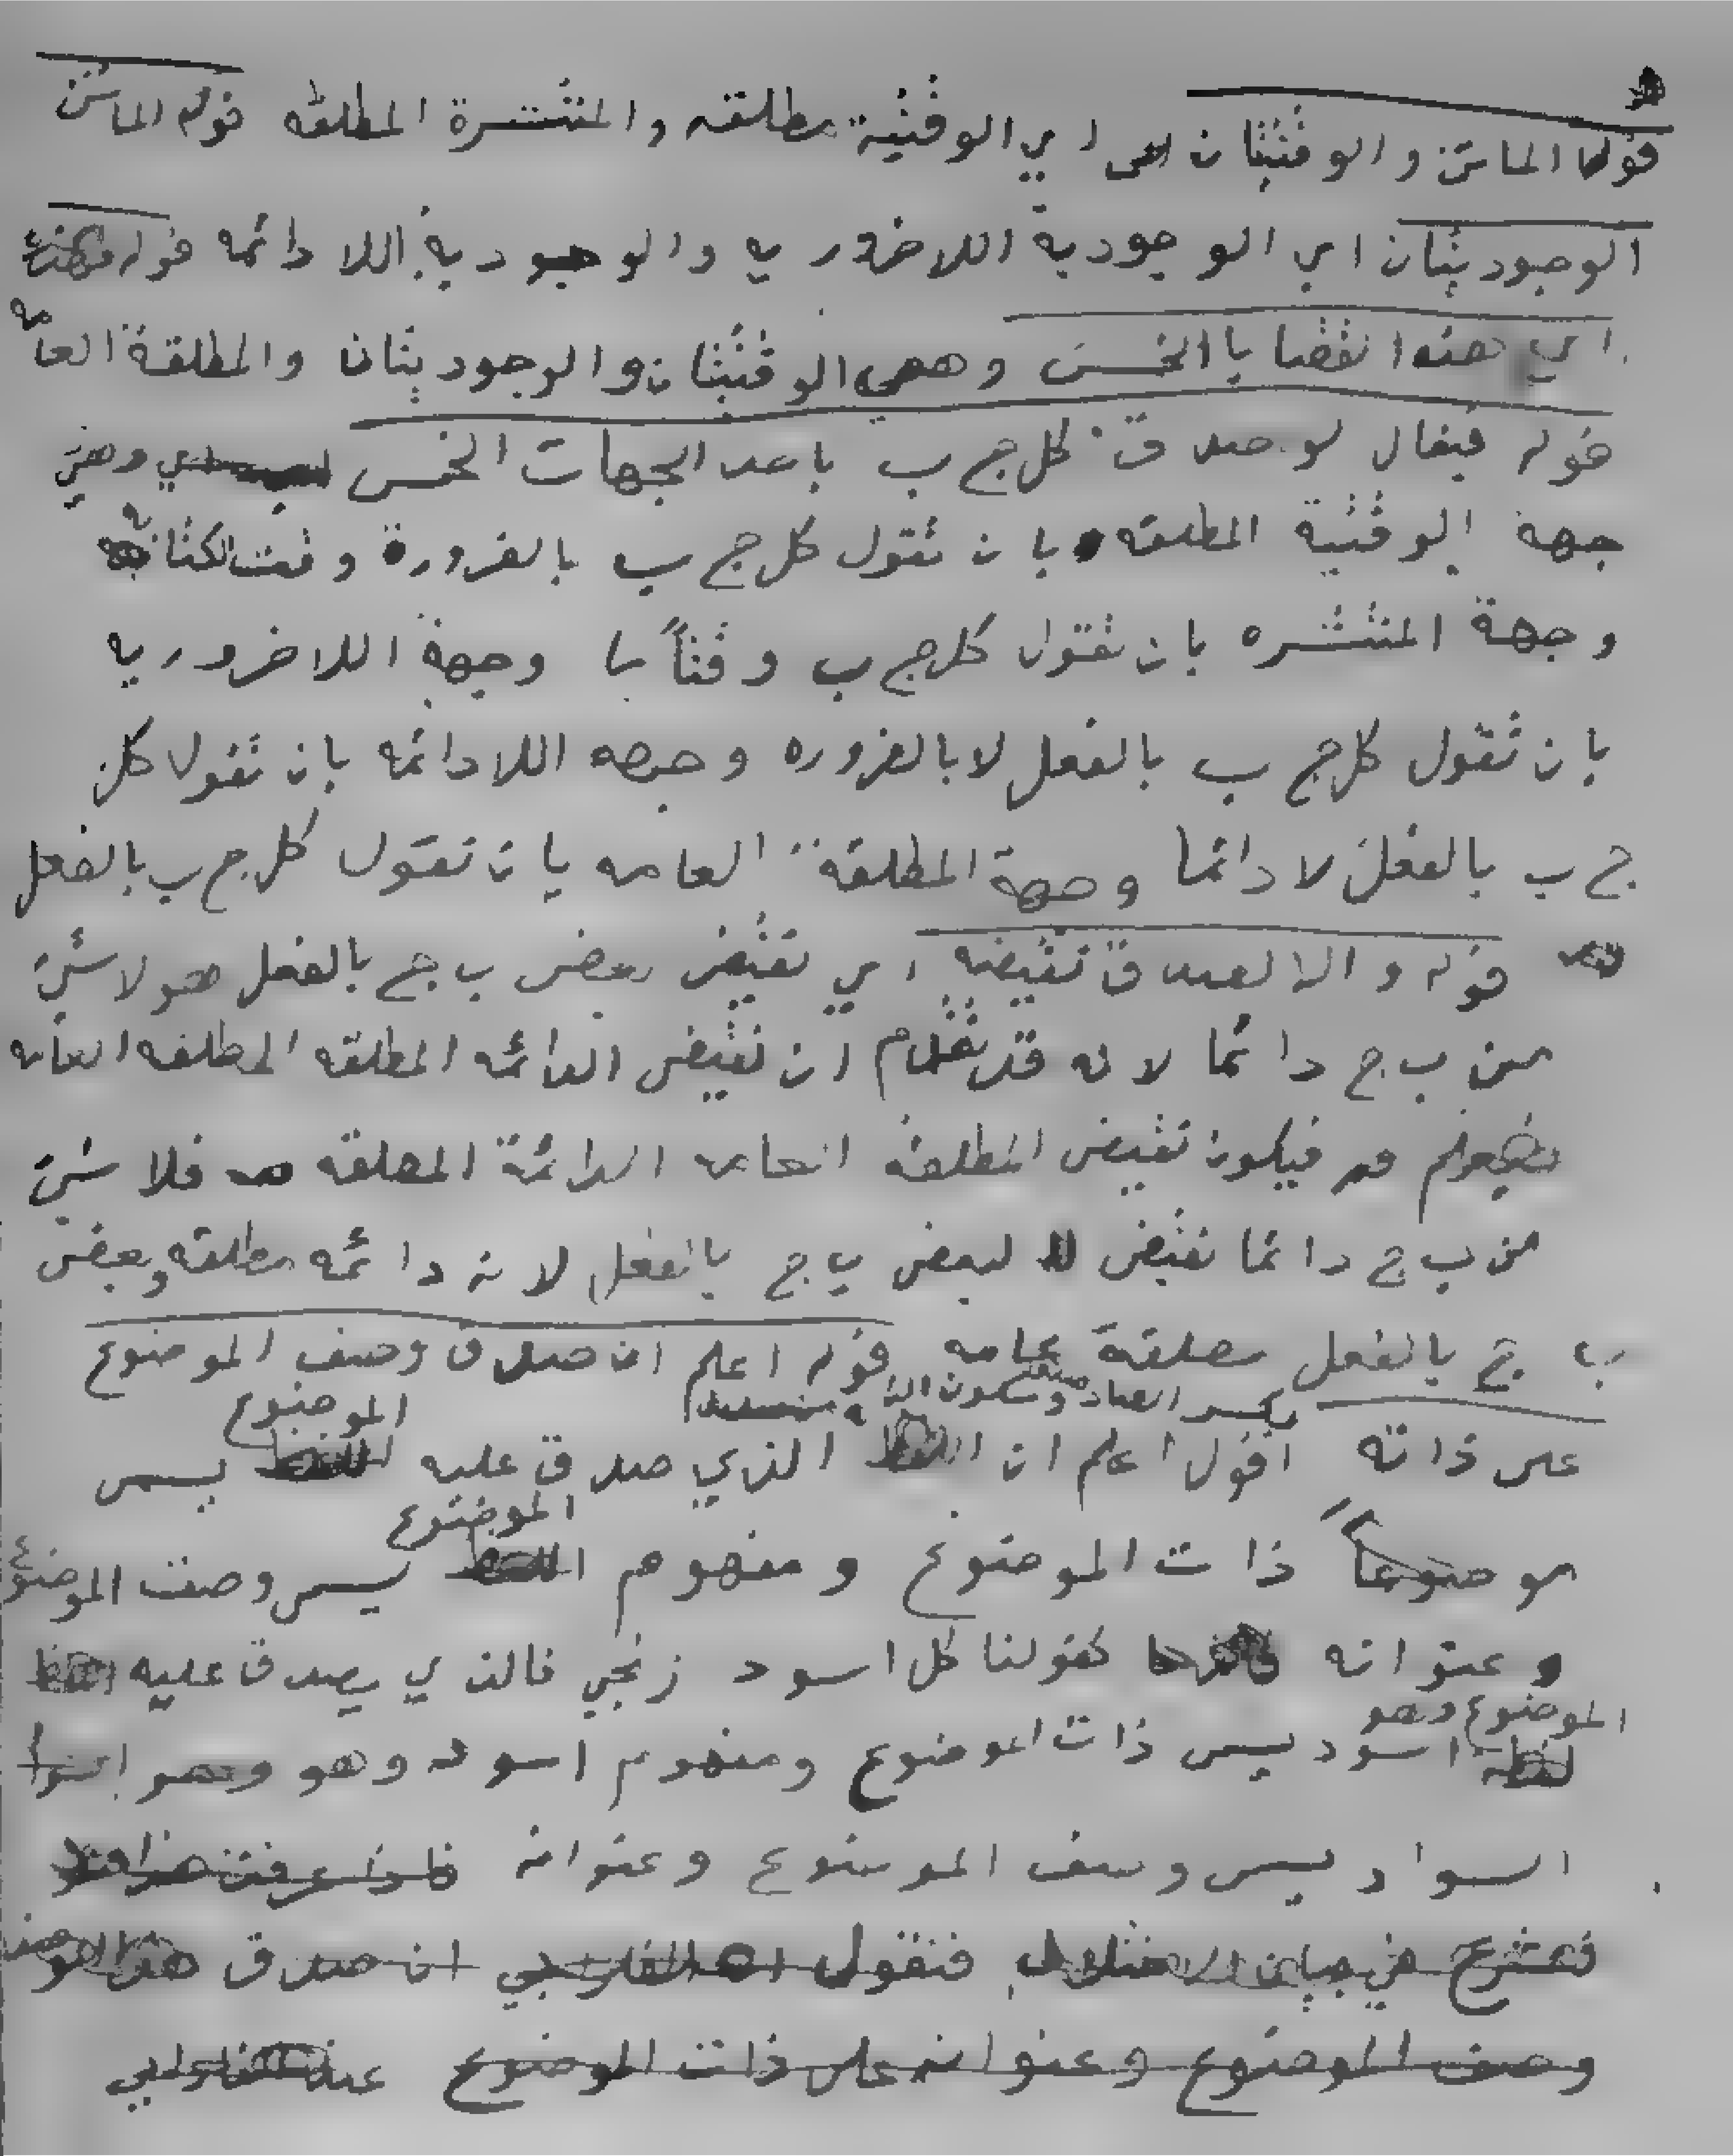 قوله الماتن والوقتيتان اي الوقتية مطلقه والمنتشرة المطلقه قوله الماتن
الوجوديتان اي الوجودية اللاضروريه والوجودية اللادائمه قوله
اي هذه القضايا الخمس وهي الوقتيتان والوجوديتان والمطلقة العامه
قوله فيقال لو صدق كل ج ب باحد الجهات الخمس وهي
جهة الوقتية المطلقه بان تقول كل ج ب بالضرورة وقت الكتابة
وجهة المنتشره بان تقول كل ج ب وقتاً ما وجهة اللاضروريه
بان تقول كل ج ب بالفعل لا بالضروره وجهه اللادائمه بان تقول كل
ج ب بالفعل لا دائما وجهة المطلقة العامه بان تقول كل ج ب بالفعل
قوله والا لصدق نقيضه اي نقيض بعض ب ج بالفعل هو لا شيء
من ب ج دائما لانه قد تقدم ان نقيض الدائمه المطلقه المطلقه العامه
فيكون نقيض المطلقه العامه الدائمة المطلقه فلا شيء
من ب ج دائما نقيض لبعض ب ج بالفعل لانه دائمه مطلقه وبعض
ب ج بالفعل مطلقة عامه قوله اعلم ان صدق وصف الموضوع
بكسر الصاد وسكون الدال
على ذاته اقول اعلم ان الذي صدق عليه الموضوع يسمى
موضوعاً ذات الموضوع ومفهوم الموضوع يسمى وصف الموضوع
وعنوانه كقولنا كل اسود زنجي فالذي يصدق عليه
الموضوع وهو
لفظة اسود يسمى ذات الموضوع ومفهوم اسود وهو
السواد يسمى وصف الموضوع وعنوانه فاذا عرفت هذا
فنقول ان صدق هذا
وصف الموضوع وعنوانه على ذات الموضوع عند الفارابي